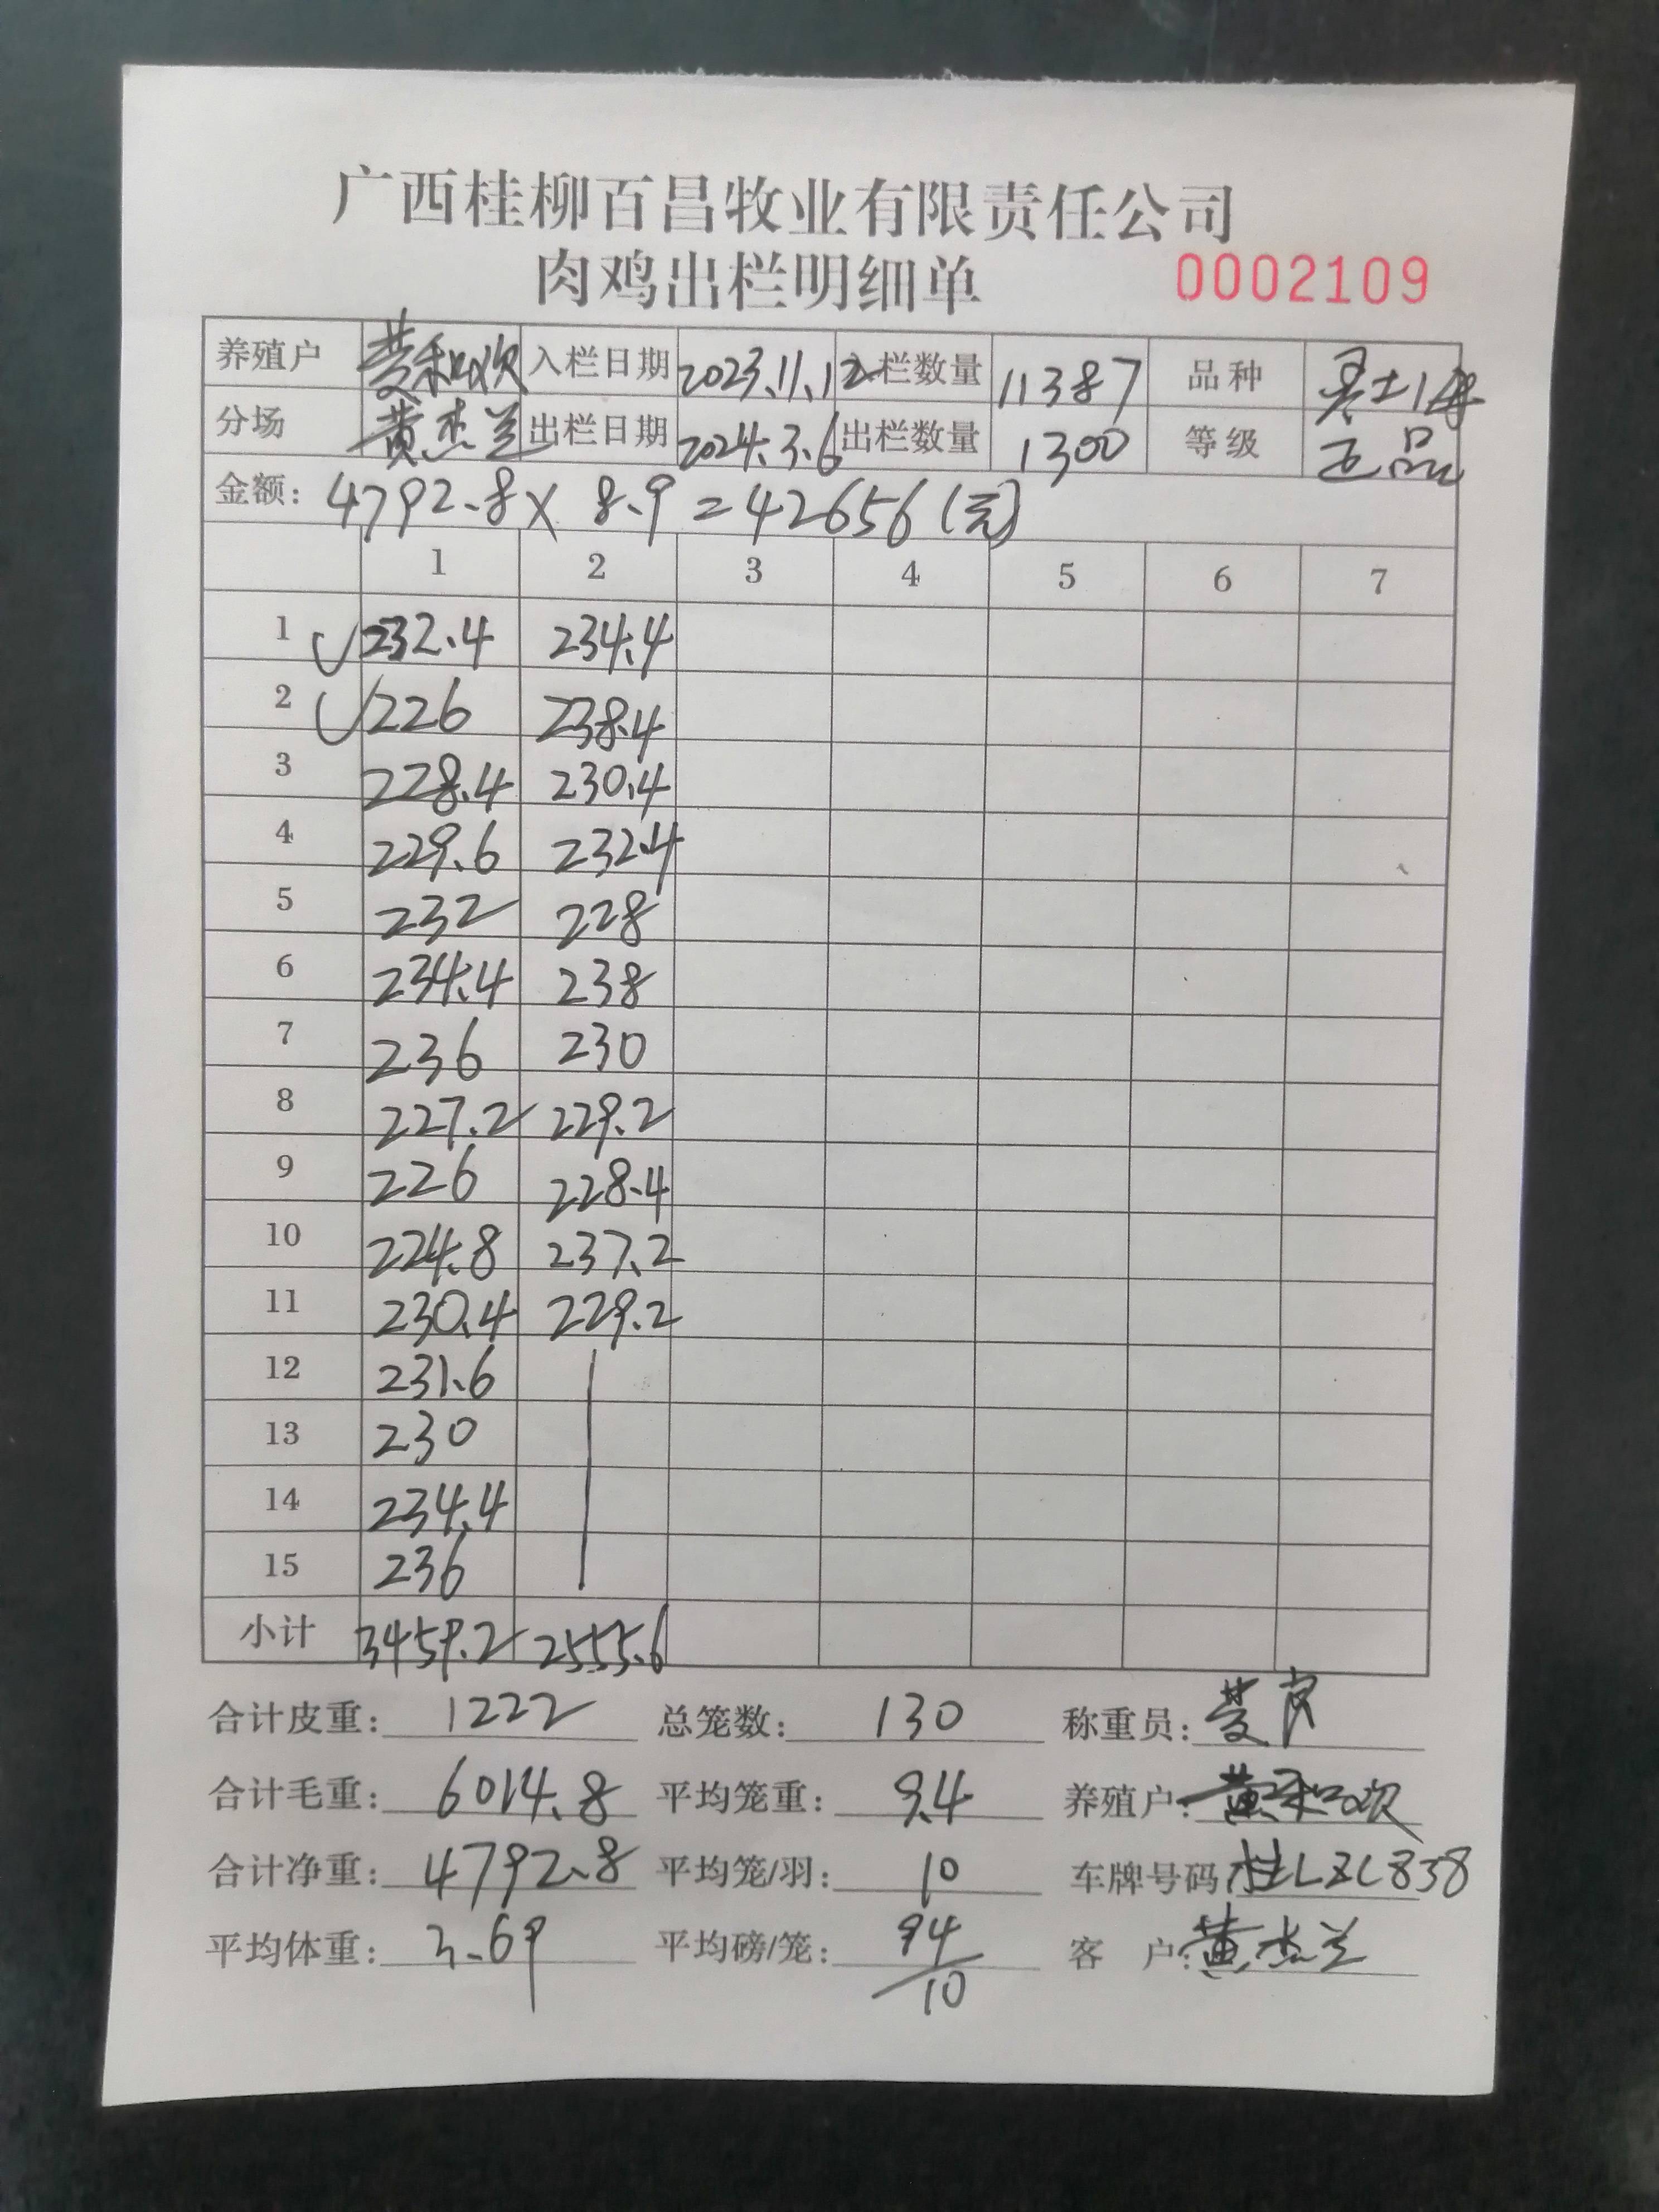 广西桂柳百昌牧业有限责任公司
肉鸡出栏明细单 0002109
养殖户 入栏日期 2023.11.12 栏数量 11387 品种
分场 黄杰兰 出栏日期 2024.3.6 出栏数量 1300 等级 正品
金额: 4792.8 × 8.9 = 42656 (元)
1 2 3 4 5 6 7
1 232.4 234.4
2 226 238.4
3 228.4 230.4
4 229.6 232.4
5 232 228
6 234.4 238
7 236 230
8 227.2 229.2
9 226 228.4
10 224.8 237.2
11 230.4 229.2
12 231.6
13 230
14 234.4
15 236
小计 3459.2 2555.6
合计皮重: 1222 总笼数: 130 称重员:
合计毛重: 6014.8 平均笼重: 9.4 养殖户:
合计净重: 4792.8 平均笼/羽: 10 车牌号码: 桂LZC838
平均体重: 3.69 平均磅/笼: 94/10 客 户: 黄杰兰